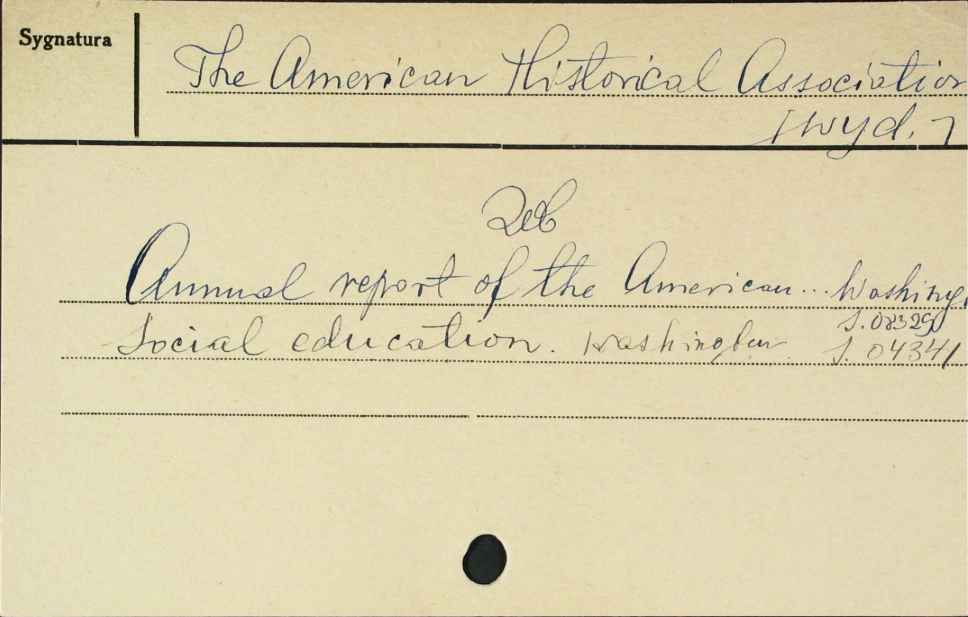 Sygnatura
The American Historical Association
[wyd.]
Zob
Annual report of the American.. Washing.
S.08329
Social education. Washington S. 04341